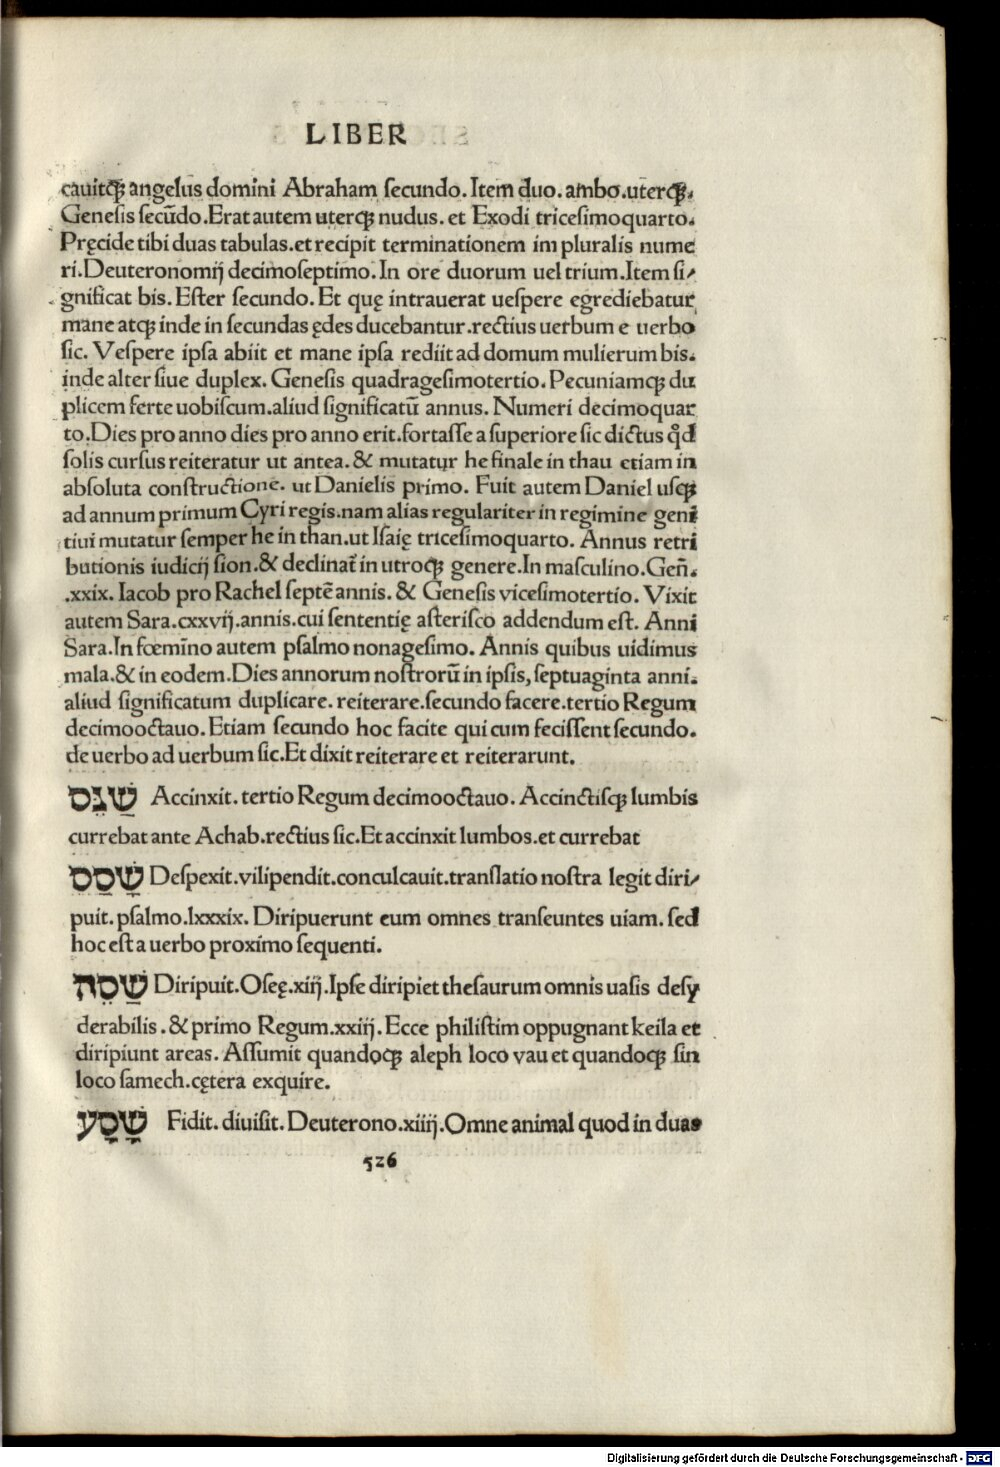 LIBER
cauitqꝫ angelus domini Abraham secundo. Item duo. ambo. uterqꝫ.
Genesis secūdo. Erat autem uterqꝫ nudus. et Exodi tricesimoquarto.
Pręcide tibi duas tabulas. et recipit terminationem im pluralis nume
ri. Deuteronomij decimoseptimo. In ore duorum uel trium. Item si⸗
gnificat bis. Ester secundo. Et quę intrauerat uespere egrediebatur
mane atqꝫ inde in secundas ędes ducebantur. rectius uerbum e uerbo
sic. Vespere ipsa abiit et mane ipsa rediit ad domum mulierum bis.
inde alter siue duplex. Genesis quadragesimotertio. Pecuniamqꝫ du
plicem ferte uobiscum. aliud significatū annus. Numeri decimoquar
to. Dies pro anno dies pro anno erit. fortasse a superiore sic dictus qd̓
solis cursus reiteratur ut antea. & mutatur he finale in thau etiam in
absoluta constructione. ut Danielis primo. Fuit autem Daniel usqꝫ
ad annum primum Cyri regis. nam alias regulariter in regimine geni
tiui mutatur semper he in than. ut Isaię tricesimoquarto. Annus retri
butionis iudicij sion. & declinat᷑ in utroqꝫ genere. In masculino. Geñ.
.xxix. Iacob pro Rachel septē annis. & Genesis vicesimotertio. Vixit
autem Sara. cxxvij. annis. cui sententię asterisco addendum est. Anni
Sara. In fœmĩno autem psalmo nonagesimo. Annis quibus uidimus
mala. & in eodem. Dies annorum nostrorū in ipsis, septuaginta anni.
aliud significatum duplicare. reiterare. secundo facere. tertio Regum
decimooctauo. Etiam secundo hoc facite qui cum fecissent secundo.
de uerbo ad uerbum sic. Et dixit reiterare et reiterarunt.
שַׁנֵּס Accinxit. tertio Regum decimooctauo. Accinctisqꝫ lumbis
currebat ante Achab. rectius sic. Et accinxit lumbos. et currebat
שָׁסַס Despexit. vilipendit. conculcauit. translatio nostra legit diri⸗
puit. psalmo. lxxxix. Diripuerunt eum omnes transeuntes uiam. sed
hoc est a uerbo proximo sequenti.
שַׁסֵה Diripuit. Oseę. xiij. Ipse diripiet thesaurum omnis uasis desy
derabilis. & primo Regum. xxiij. Ecce philistim oppugnant keila et
diripiunt areas. Assumit quandoqꝫ aleph loco vau et quandoqꝫ sin
loco samech. cętera exquire.
שָׁסָע Fidit. diuisit. Deuterono. xiiij. Omne animal quod in duas
526
Digitalisierung gefördert durch die Deutsche Forschungsgemeinschaft - DFG